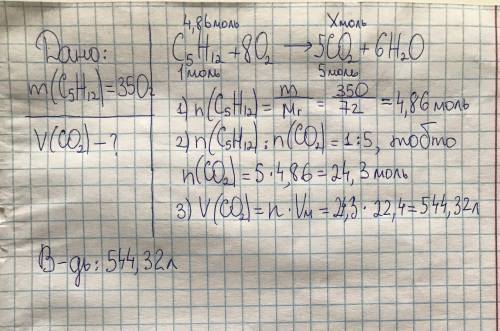 Дано:
m(C₅H₁₂)=350г
V(CO₂)-?
4,86моль Xмоль
C₅H₁₂+8O₂→5CO₂+6H₂O
1моль 5моль
1) n(C₅H₁₂)=m/Mr=350/72=4,86моль
2) n(C₅H₁₂):n(CO₂)=1:5, тобто
n(CO₂)=5·4,86=24,3моль
3) V(CO₂)=n·Vм=24,3·22,4=544,32л
В-дь: 544,32л